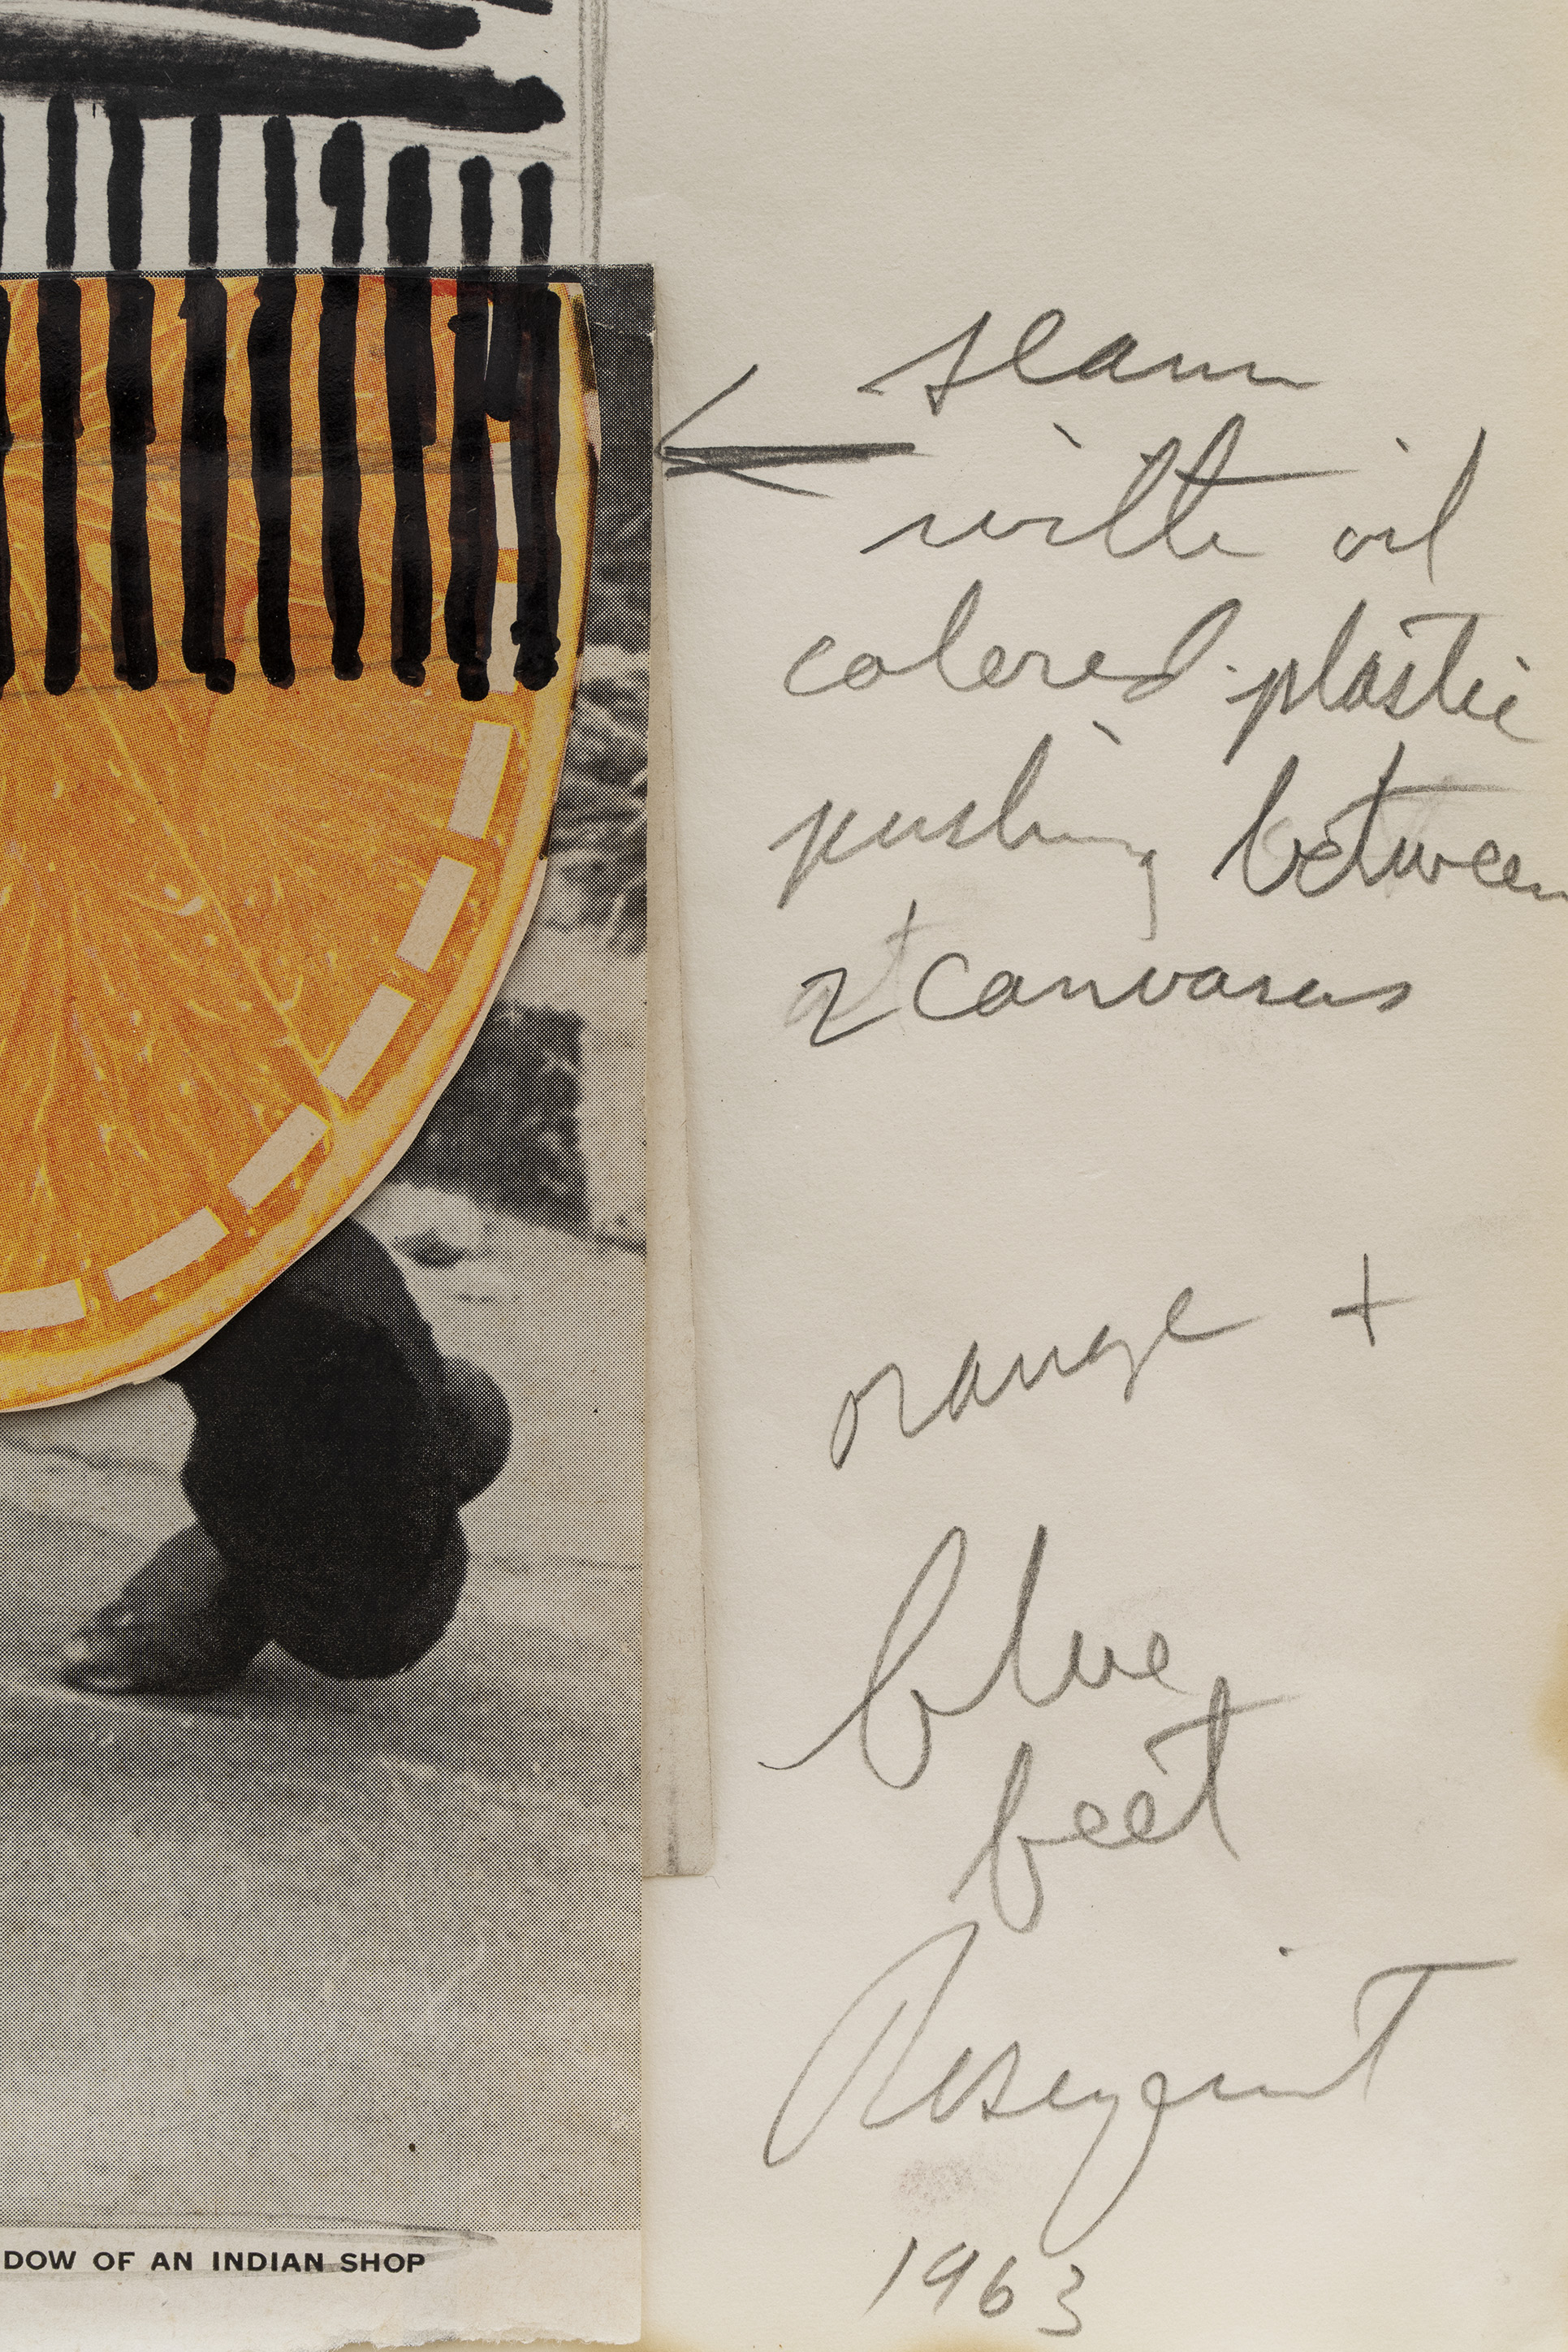 seam
with oil
colored plastic
pushing between
2 canvases
orange +
blue
feet
Rosenquist
1963
DOW OF AN INDIAN SHOP